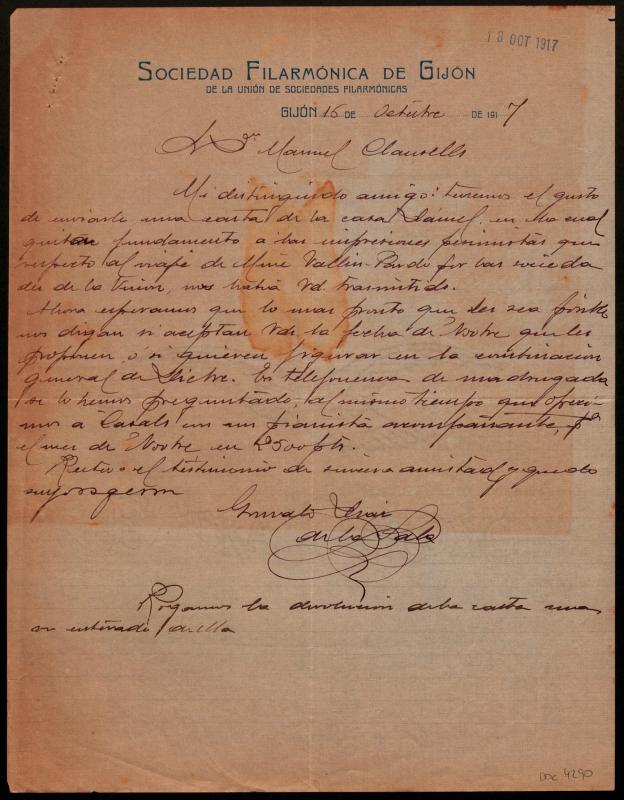 18 OCT 1917
SOCIEDAD FILARMÓNICA DE GIJÓN
DE LA UNIÓN DE SOCIEDADES FILARMÓNICAS
GIJÓN 15 DE Octubre DE 1917
A Dn Manuel Clausells
Mi distinguido amigo: tenemos el gusto
de enviarle una carta de la casa Daniel en la cual
quitan fundamento a las impresiones pesimistas que
respecto al viaje de Mme Vallin-Pardo por las socieda
des de la Unión, nos había Vd trasmitido.
Ahora esperamos que lo mas pronto que les sea posible
nos digan si aceptan Vds la fecha de Novbre que les
proponen o si quieren figurar en la combinación
general de Dicbre. En telefonema de madrugada
se lo hemos preguntado, al mismo tiempo que ofrecia
mos a Casals con un pianista acompañante, pa
el mes de Novbre en 2500 pts.
Reciba el testimonio de sincera amistad y quedo
suyo
Gonzalo
de la Sala
Rogamos la devolución de la carta una
vez enterado de ella
Doc 4290